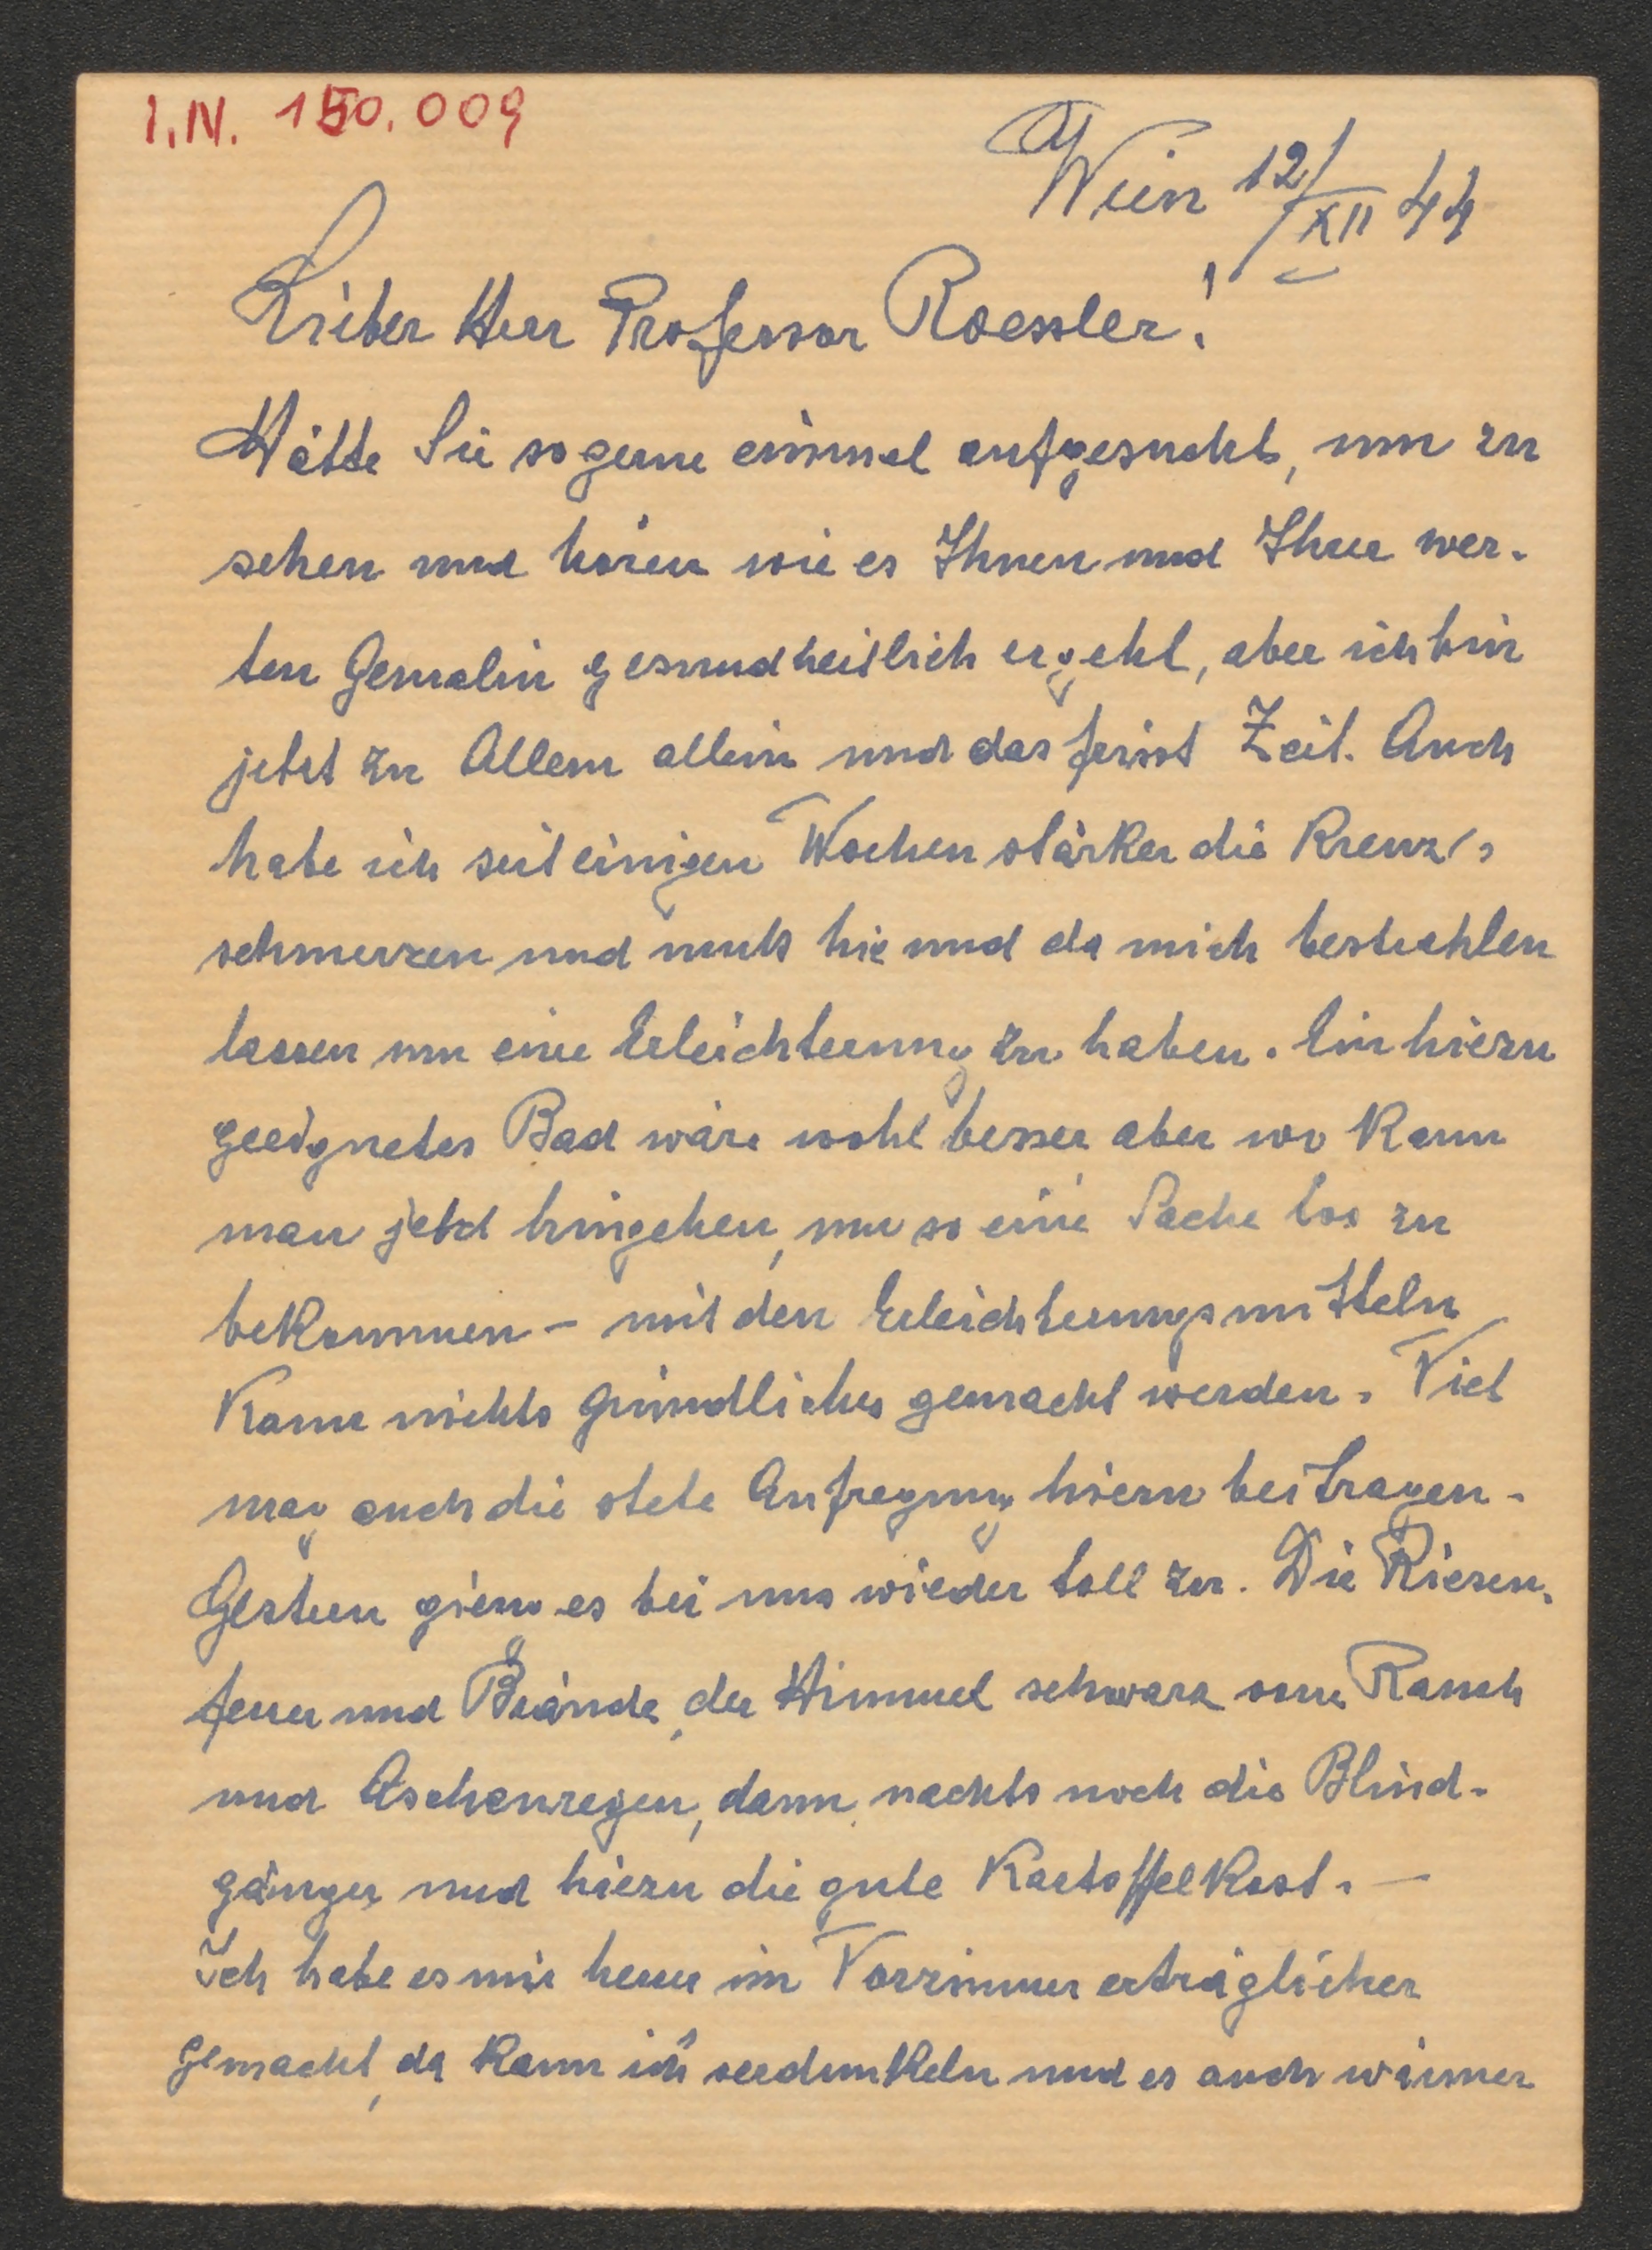 I.N. 150.009
Wien 12/XII 44
Lieber Herr Professor Roessler!
Hätte Sie so gerne einmal aufgesucht, um zu
sehen und hören wie es Ihnen und Ihrer wer-
ten Gemalin gesundheitlich ergeht, aber ich bin
jetzt zu Allem allein und das frisst Zeit. Auch
habe ich seit einigen Wochen stärker die Kreuz-
schmerzen und muß hie und da mich bestrahlen
lassen um eine Erleichterung zu haben. Ein hiezu
geeignetes Bad wäre wohl besser aber wo kann
man jetzt hingehen, um so eine Sache los zu
bekommen – mit den Erleichterungsmitteln
kann nichts gründliches gemacht werden. Viel
mag auch die stete Aufregung hiezu beitragen.
Gestern gieng es bei uns wieder toll zu. Die Riesen-
feuer und Brände, der Himmel schwarz vom Rauch
und Aschenregen, dann nachts noch die Blind-
gänger und hiezu die gute Kartoffelkost. —
Ich habe es mir heuer im Vorzimmer erträglicher
gemacht, da kann ich verdunkeln und es auch wärmer